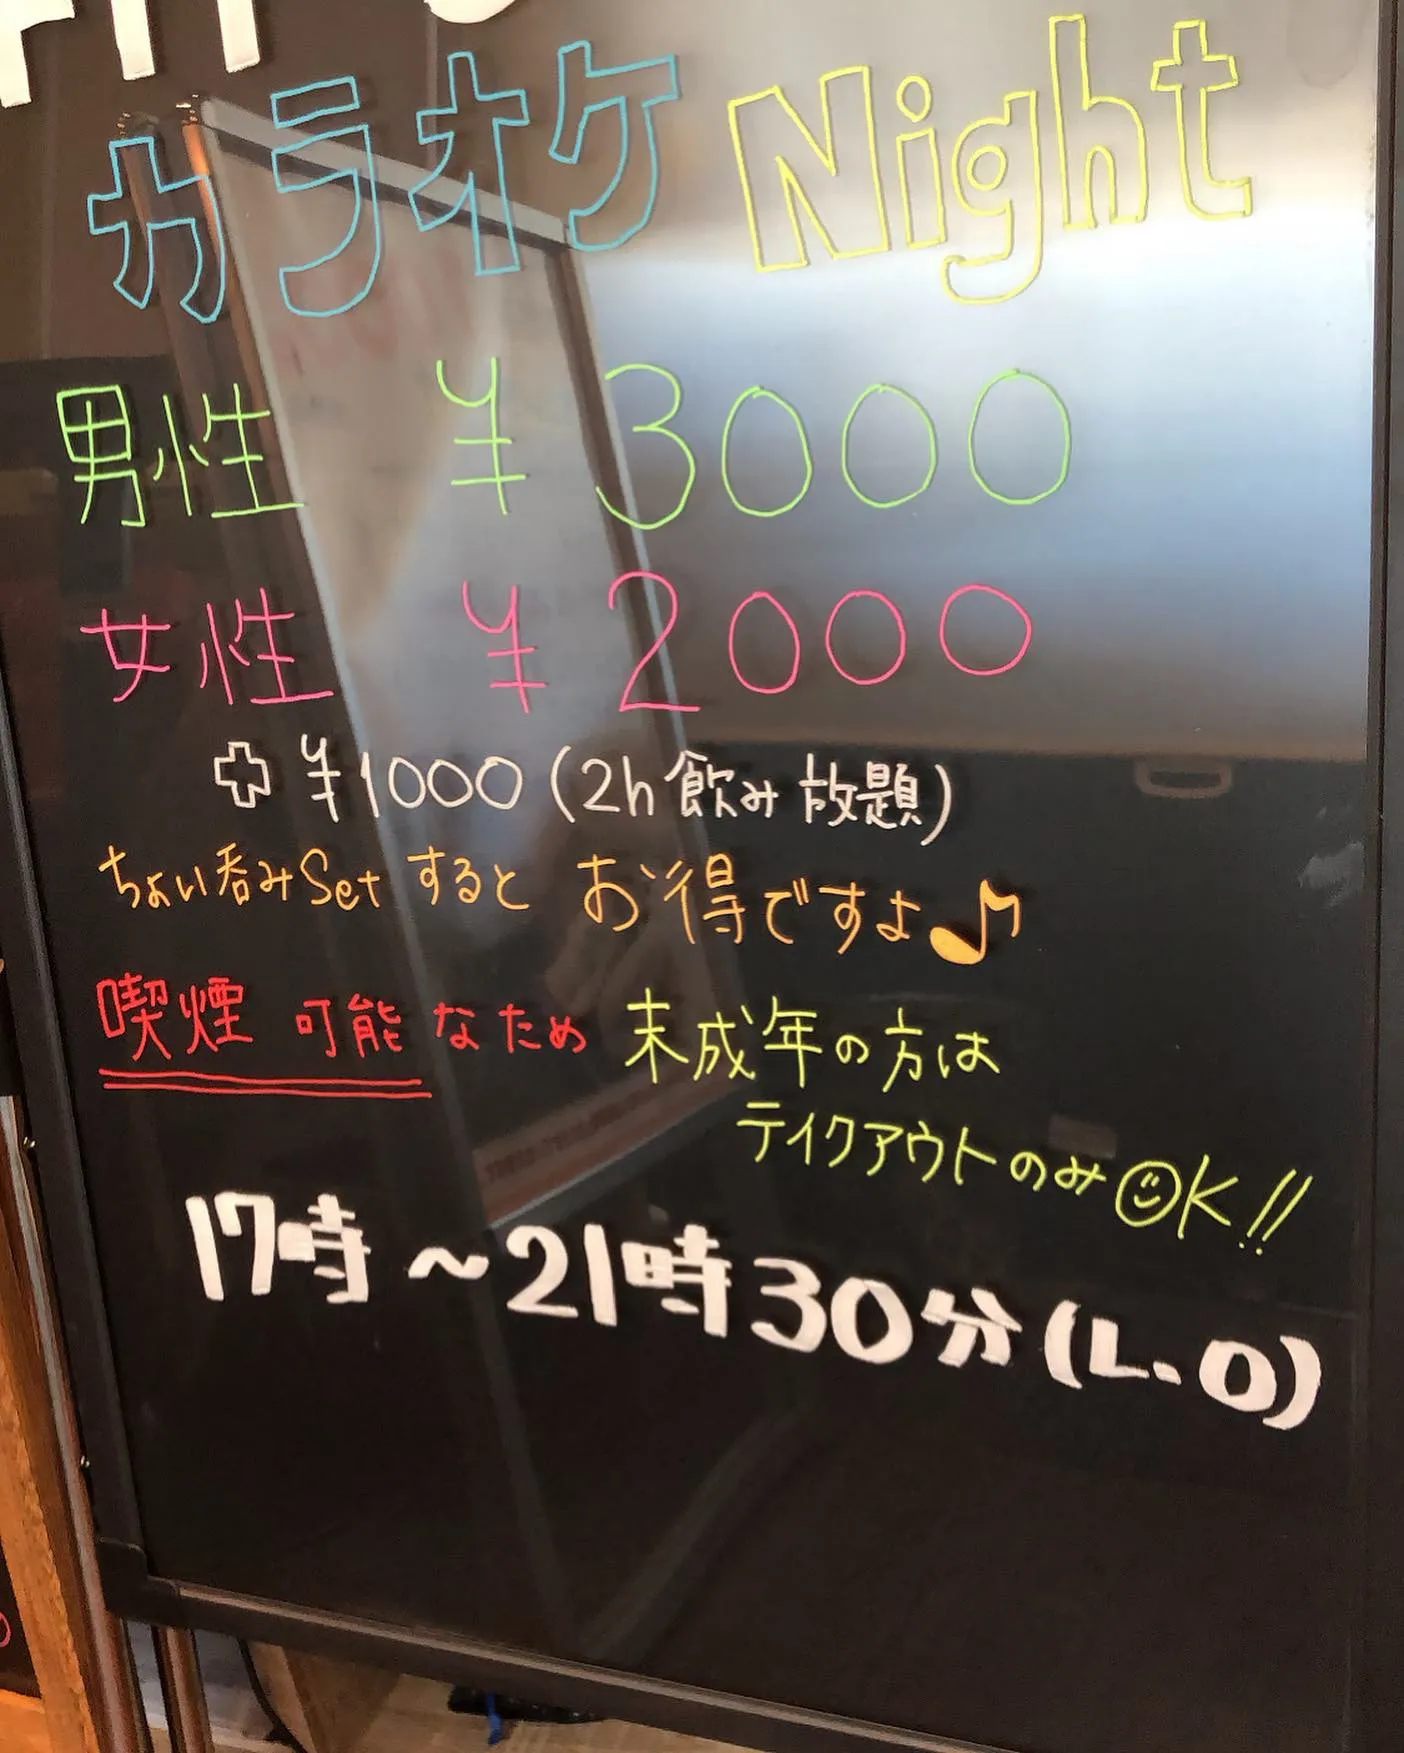 カラオケ Night
男性 ¥3000
女性 ¥2000
+ ¥1000 (2h 飲み放題)
ちょい呑みSet すると お得ですよ♪
喫煙 可能なため 未成年の方は
テイクアウトのみOK!!
17時〜21時30分(L.O)